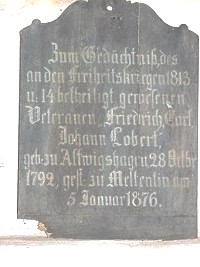 Zum Gedächtniß des
an den Freiheitskriegen 1813
u. 14 betheiligt gewesenen
Veteranen Friedrich, Carl,
Johann Lobert,
geb. zu Altwigshagen 28 Octbr
1792, gest. zu Mellentin am
5 Januar 1876.